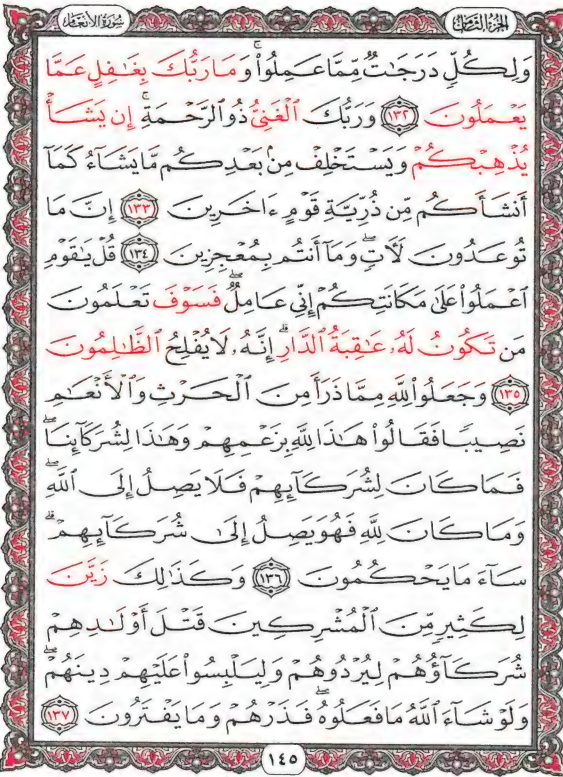 الجزء الثامن سورة الأنعام
وَلِكُلٍّ دَرَجَٰتٌ مِّمَّا عَمِلُوا۟ ۚ وَمَا رَبُّكَ بِغَٰفِلٍ عَمَّا
يَعْمَلُونَ ١٣٢ وَرَبُّكَ ٱلْغَنِىُّ ذُو ٱلرَّحْمَةِ ۚ إِن يَشَأْ
يُذْهِبْكُمْ وَيَسْتَخْلِفْ مِنۢ بَعْدِكُم مَّا يَشَآءُ كَمَآ
أَنشَأَكُم مِّن ذُرِّيَّةِ قَوْمٍ ءَاخَرِينَ ١٣٣ إِنَّ مَا
تُوعَدُونَ لَـَٔاتٍ ۖ وَمَآ أَنتُم بِمُعْجِزِينَ ١٣٤ قُلْ يَٰقَوْمِ
ٱعْمَلُوا۟ عَلَىٰ مَكَانَتِكُمْ إِنِّى عَامِلٌ ۖ فَسَوْفَ تَعْلَمُونَ
مَن تَكُونُ لَهُۥ عَٰقِبَةُ ٱلدَّارِ ۗ إِنَّهُۥ لَا يُفْلِحُ ٱلظَّٰلِمُونَ
١٣٥ وَجَعَلُوا۟ لِلَّهِ مِمَّا ذَرَأَ مِنَ ٱلْحَرْثِ وَٱلْأَنْعَٰمِ
نَصِيبًا فَقَالُوا۟ هَٰذَا لِلَّهِ بِزَعْمِهِمْ وَهَٰذَا لِشُرَكَآئِنَا ۖ
فَمَا كَانَ لِشُرَكَآئِهِمْ فَلَا يَصِلُ إِلَى ٱللَّهِ ۖ
وَمَا كَانَ لِلَّهِ فَهُوَ يَصِلُ إِلَىٰ شُرَكَآئِهِمْ ۗ
سَآءَ مَا يَحْكُمُونَ ١٣٦ وَكَذَٰلِكَ زَيَّنَ
لِكَثِيرٍ مِّنَ ٱلْمُشْرِكِينَ قَتْلَ أَوْلَٰدِهِمْ
شُرَكَآؤُهُمْ لِيُرْدُوهُمْ وَلِيَلْبِسُوا۟ عَلَيْهِمْ دِينَهُمْ ۖ
وَلَوْ شَآءَ ٱللَّهُ مَا فَعَلُوهُ ۖ فَذَرْهُمْ وَمَا يَفْتَرُونَ ١٣٧
١٤٥